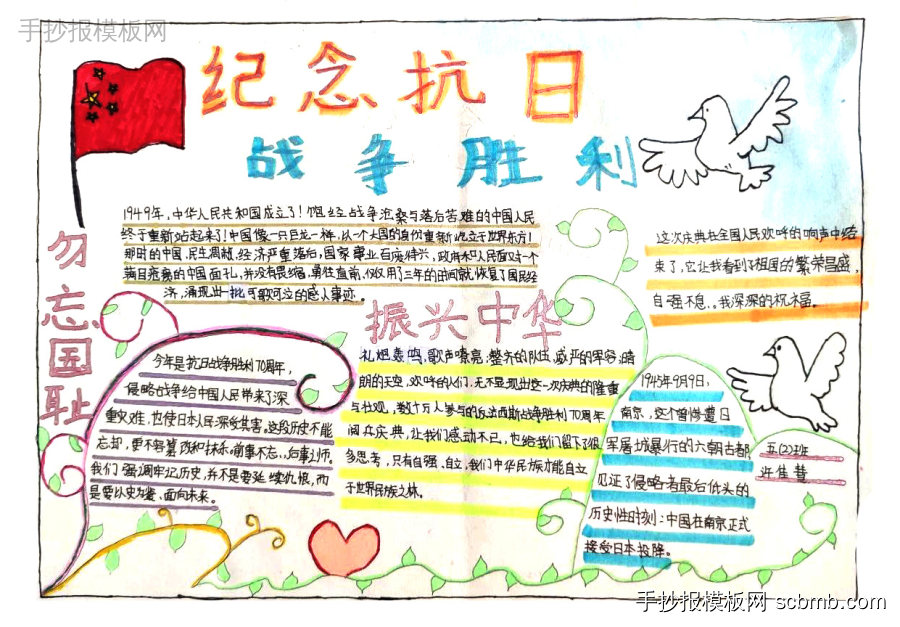 手抄报模板网
纪念抗日
战争胜利
勿忘国耻
1949年，中华人民共和国成立了！饱经战争沧桑与落后苦难的中国人民
终于重新站起来了！中国像一只巨龙一样，以一个大国的身份重新屹立于世界东方！
那时的中国，民生凋敝，经济严重落后，国家事业百废待兴，政府和人民面对一个
满目疮痍的中国面孔，并没有畏缩，勇往直前，仅仅用了三年的时间就恢复了国民经
济，涌现出一批可歌可泣的感人事迹。
这次庆典在全国人民欢呼的响声中结
束了，它让我看到了祖国的繁荣昌盛，
自强不息，我深深的祝福。
振兴中华
今年是抗日战争胜利70周年，
侵略战争给中国人民带来了深
重灾难，也使日本人民深受其害，这段历史不能
忘却，更不容篡改和抹杀。前事不忘，后事之师，
我们强调牢记历史，并不是要延续仇恨，而
是要以史为鉴、面向未来。
礼炮轰鸣，歌声嘹亮；整齐的队伍，威严的军容；晴
朗的天空，欢呼的人们，无不显现出这一次庆典的隆重
与壮观，数十万人参与的反法西斯战争胜利70周年
阅兵庆典，让我们感动不已，也给我们留下了很
多思考，只有自强、自立，我们中华民族才能自立
于世界民族之林。
1945年9月9日，
南京，这个曾惨遭日
军屠城暴行的六朝古都
见证了侵略者最后低头的
历史性时刻：中国在南京正式
接受日本投降。
五(2)班
许佳慧
手抄报模板网 scbmb.com